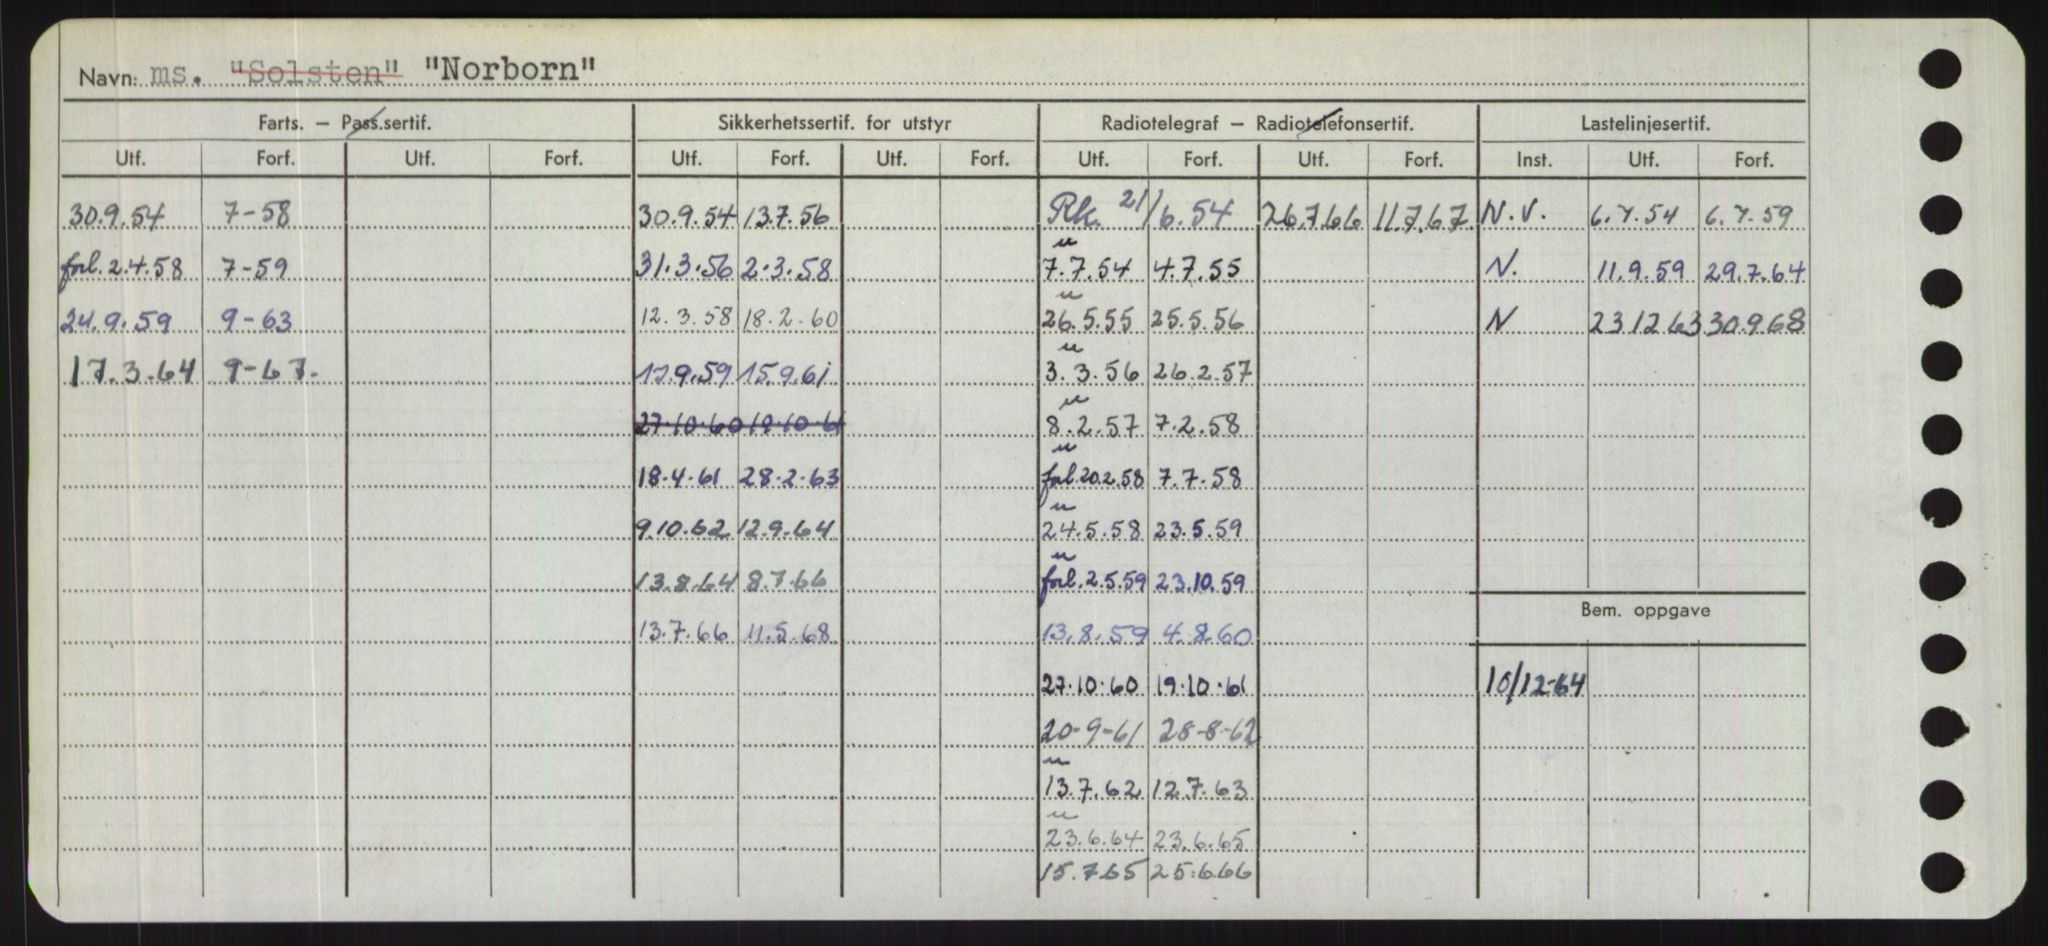 Navn: ms. "Solsten" "Norborn"
Farts. – Pass.sertif. Sikkerhetssertif. for utstyr Radiotelegraf – Radiotelefonsertif. Lastelinjesertif.
Utf. Forf. Utf. Forf. Utf. Forf. Utf. Forf. Utf. Forf. Utf. Forf. Inst. Utf. Forf.
30.9.54 7-58 30.9.54 13.7.56 Rk. 21/6.54 26.7.66 11.7.67. N.V. 6.7.54 6.7.59
forl. 2.4.58 7-59 31.3.56 2.3.58 " 7.7.54 4.7.55 N. 11.9.59 29.7.64
24.9.59 9-63 12.3.58 18.2.60 " 26.5.55 25.5.56 N 23.12.63 30.9.68
17.3.64 9-67. 17.9.59 15.9.61 " 3.3.56 26.2.57
27.10.60 19.10.61 " 8.2.57 7.2.58
18.4.61 28.2.63 " forl. 20.2.58 7.7.58
9.10.62 12.9.64 " 24.5.58 23.5.59
13.8.64 8.7.66 " forl. 2.5.59 23.10.59
Bem. oppgave
13.7.66 11.5.68 13.8.59 4.8.60
27.10.60 19.10.61 10/12-64
20-9-61 28-8-62
" 13.7.62 12.7.63
" 23.6.64 23.6.65
15.7.65 25.6.66